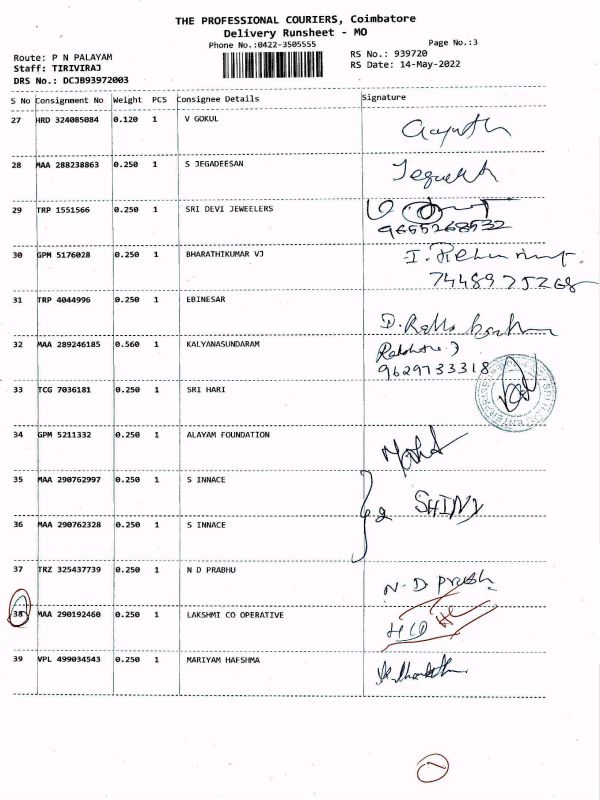 THE PROFESSIONAL COURIERS, Coimbatore
Delivery Runsheet - MO
Phone No.:0422-3505555
Page No.:3
Route: P N PALAYAM
RS No.: 939720
Staff: TIRIVIRAJ
RS Date: 14-May-2022
DRS No.: DCJB93972003
S No Consignment No Weight PCS Consignee Details Signature
27 HRD 324085084 0.120 1 V GOKUL
28 MAA 288238863 0.250 1 S JEGADEESAN
29 TRP 1551566 0.250 1 SRI DEVI JEWEELERS
9655268532
30 GPM 5176028 0.250 1 BHARATHIKUMAR VJ
7448975268
31 TRP 4044996 0.250 1 EBINESAR
32 MAA 289246185 0.560 1 KALYANASUNDARAM
9629733318
33 TCG 7036181 0.250 1 SRI HARI
34 GPM 5211332 0.250 1 ALAYAM FOUNDATION
35 MAA 290762997 0.250 1 S INNACE
2 SHINY
36 MAA 290762328 0.250 1 S INNACE
37 TRZ 325437739 0.250 1 N D PRABHU
N.D
38 MAA 290192460 0.250 1 LAKSHMI CO OPERATIVE
39 VPL 499034543 0.250 1 MARIYAM HAFSHMA